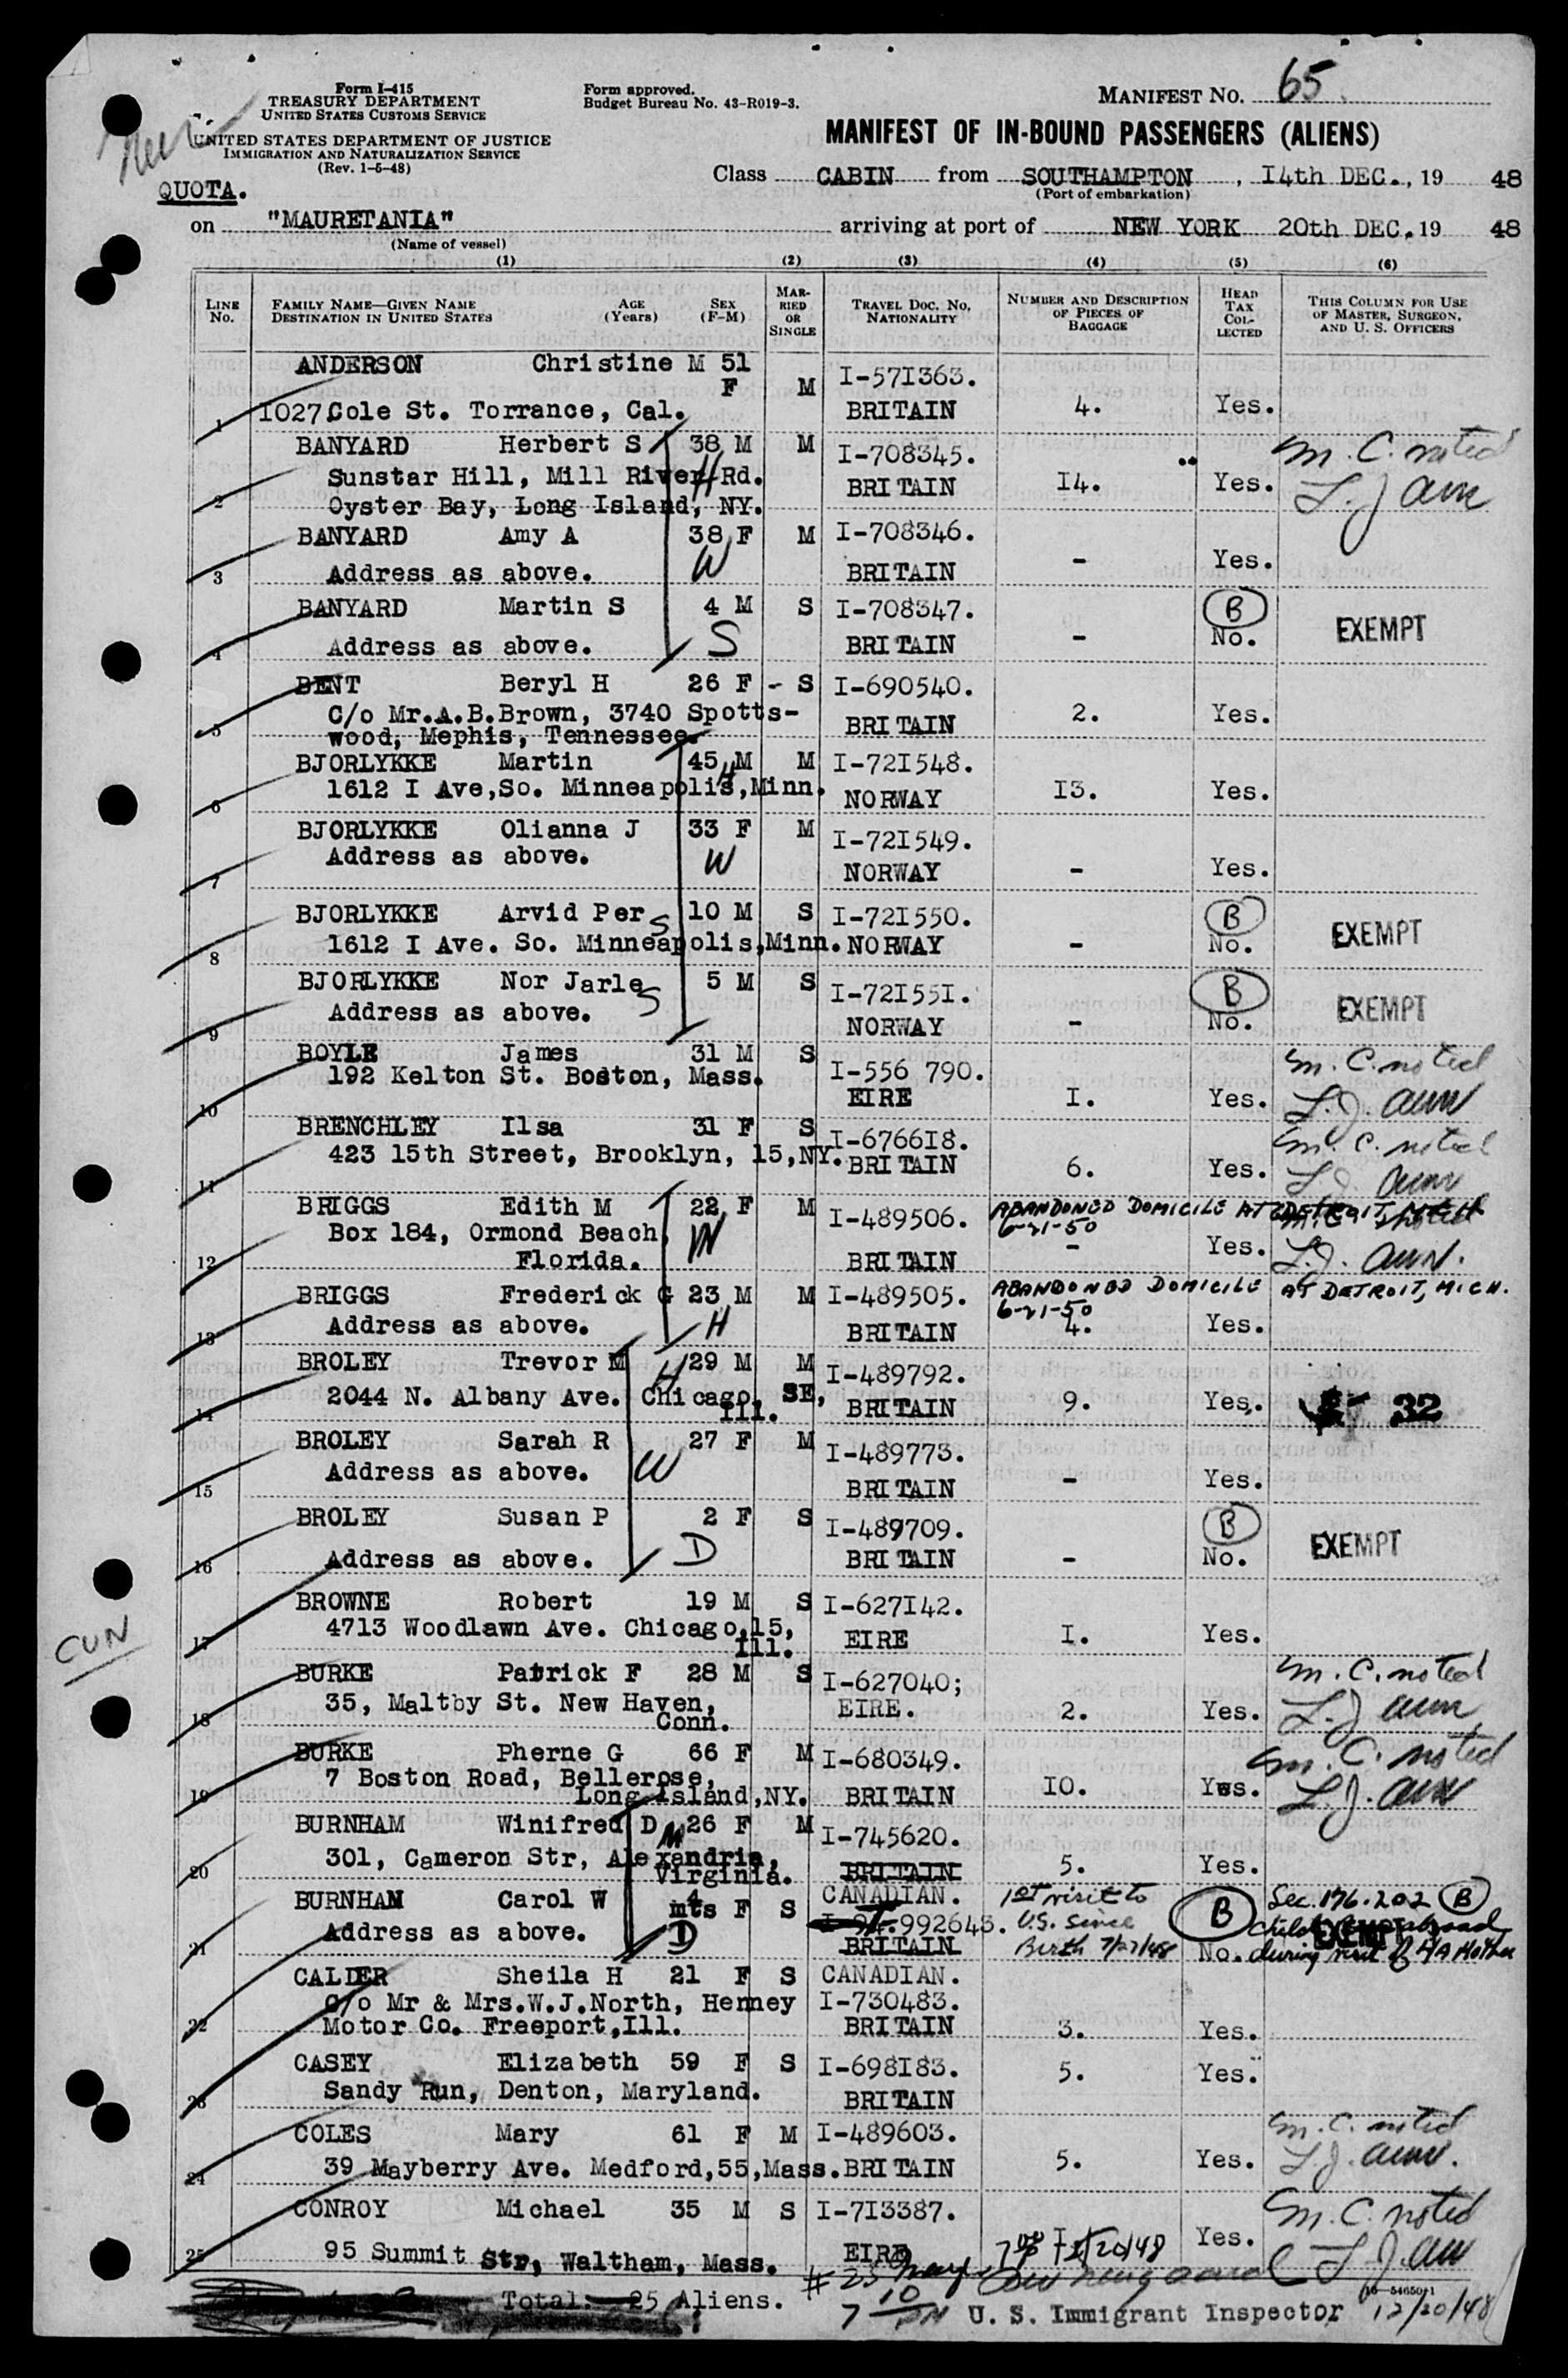 Form I-415
TREASURY DEPARTMENT
UNITED STATES CUSTOMS SERVICE
UNITED STATES DEPARTMENT OF JUSTICE
IMMIGRATION AND NATURALIZATION SERVICE
(Rev. 1-5-48)
Form approved.
Budget Bureau No. 43-R019-3.
MANIFEST NO. 65
MANIFEST OF IN-BOUND PASSENGERS (ALIENS)
QUOTA.
Class CABIN from SOUTHAMPTON, 14th DEC., 19 48
(Port of embarkation)
on "MAURETANIA" arriving at port of NEW YORK 20th DEC. 19 48
(Name of vessel)
(1) (2) (3) (4) (5) (6)
LINE No. FAMILY NAME—GIVEN NAME DESTINATION IN UNITED STATES AGE (Years) SEX (F-M) MARRIED OR SINGLE TRAVEL DOC. NO. NATIONALITY NUMBER AND DESCRIPTION OF PIECES OF BAGGAGE HEAD TAX COLLECTED THIS COLUMN FOR USE OF MASTER, SURGEON, AND U. S. OFFICERS
ANDERSON Christine M 51 F M I-571363.
1 1027 Cole St. Torrance, Cal. BRITAIN 4. Yes.
BANYARD Herbert S 38 M M I-708345. M.C. noted
Sunstar Hill, Mill River Rd. H BRITAIN 14. Yes.
2 Oyster Bay, Long Island, NY.
BANYARD Amy A 38 F M I-708346.
3 Address as above. W BRITAIN - Yes.
BANYARD Martin S 4 M S I-708347. B
4 Address as above. S BRITAIN - No. EXEMPT
BENT Beryl H 26 F - S I-690540.
C/o Mr.A.B.Brown, 3740 Spotts-
5 wood, Mephis, Tennessee. BRITAIN 2. Yes.
BJORLYKKE Martin 45 M M I-721548.
6 1612 I Ave,So. Minneapolis,Minn. H NORWAY 13. Yes.
BJORLYKKE Olianna J 33 F M I-721549.
7 Address as above. W NORWAY - Yes.
BJORLYKKE Arvid Per S 10 M S I-721550. B
8 1612 I Ave. So. Minneapolis,Minn. NORWAY - No. EXEMPT
BJORLYKKE Nor Jarle S 5 M S I-721551. B
9 Address as above. NORWAY - No. EXEMPT
BOYLE James 31 M S I-556 790. M.C. noted
10 192 Kelton St. Boston, Mass. EIRE 1. Yes.
BRENCHLEY Ilsa 31 F S I-676618. M.C. noted
11 423 15th Street, Brooklyn, 15,NY. BRITAIN 6. Yes.
BRIGGS Edith M 22 F M I-489506. ABANDONED DOMICILE AT DETROIT, MICH. 6-21-50
Box 184, Ormond Beach, W
12 Florida. BRITAIN - Yes.
BRIGGS Frederick G 23 M M I-489505. ABANDONED DOMICILE AT DETROIT, MICH. 6-21-50
13 Address as above. H BRITAIN 4. Yes.
BROLEY Trevor M H 29 M M I-489792.
14 2044 N. Albany Ave. Chicago, SE, Ill. BRITAIN 9. Yes. 32
BROLEY Sarah R 27 F M I-489773.
15 Address as above. W BRITAIN - Yes.
BROLEY Susan P 2 F S I-489709. B
16 Address as above. D BRITAIN - No. EXEMPT
BROWNE Robert 19 M S I-627142.
17 4713 Woodlawn Ave. Chicago,15, Ill. EIRE 1. Yes.
CUN
BURKE Patrick F 28 M S I-627040; M.C. noted
18 35, Maltby St. New Haven, Conn. EIRE. 2. Yes.
BURKE Pherne G 66 F M I-680349. M.C. noted
7 Boston Road, Bellerose,
19 Long Island,NY. BRITAIN 10. Yes.
BURNHAM Winifred D M 26 F M I-745620.
20 301, Cameron Str, Alexandria, Virginia. BRITAIN 5. Yes.
BURNHAM Carol W 4 mts F S CANADIAN. 1st visit to U.S. since Birth 7/27/48 B Sec. 176.202 (B)
21 Address as above. D 992643. BRITAIN No. EXEMPT Child abroad during visit of Mother
CALDER Sheila H 21 F S CANADIAN.
C/o Mr & Mrs.W.J.North, Henney I-730483.
22 Motor Co. Freeport,Ill. BRITAIN 3. Yes.
CASEY Elizabeth 59 F S I-698183. 5. Yes.
23 Sandy Run, Denton, Maryland. BRITAIN
COLES Mary 61 F M I-489603. M.C. noted
24 39 Mayberry Ave. Medford,55,Mass. BRITAIN 5. Yes.
CONROY Michael 35 M S I-713387. M.C. noted
25 95 Summit Str, Waltham, Mass. EIRE 1. Yes.
Total: 25 Aliens.
U. S. Immigrant Inspector 12/20/48